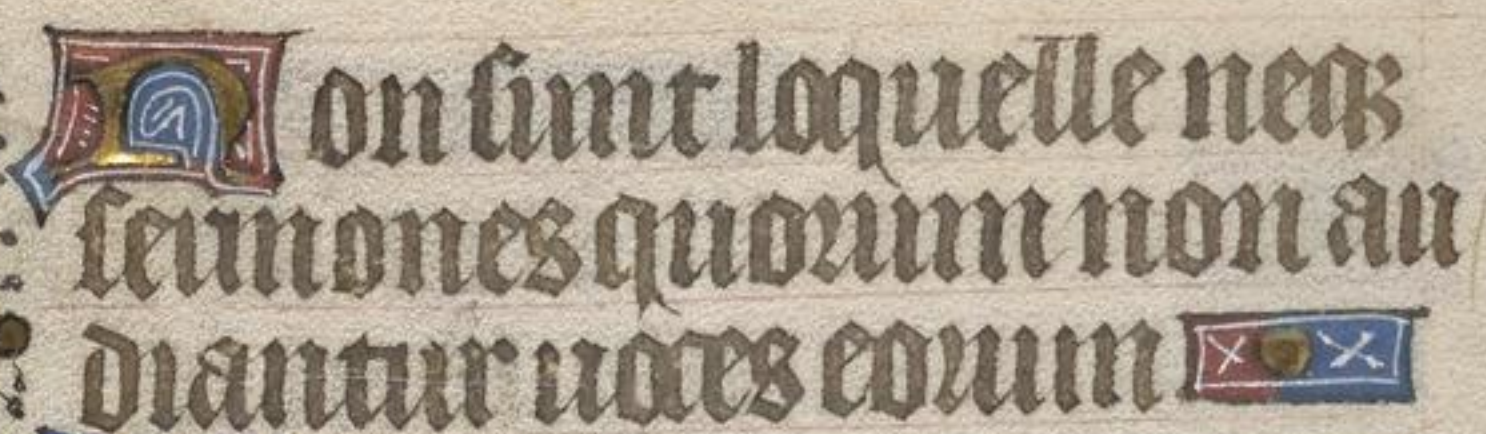 Non sunt loquelle neqꝫ
sermones quorum non au
diantur uoces eorum